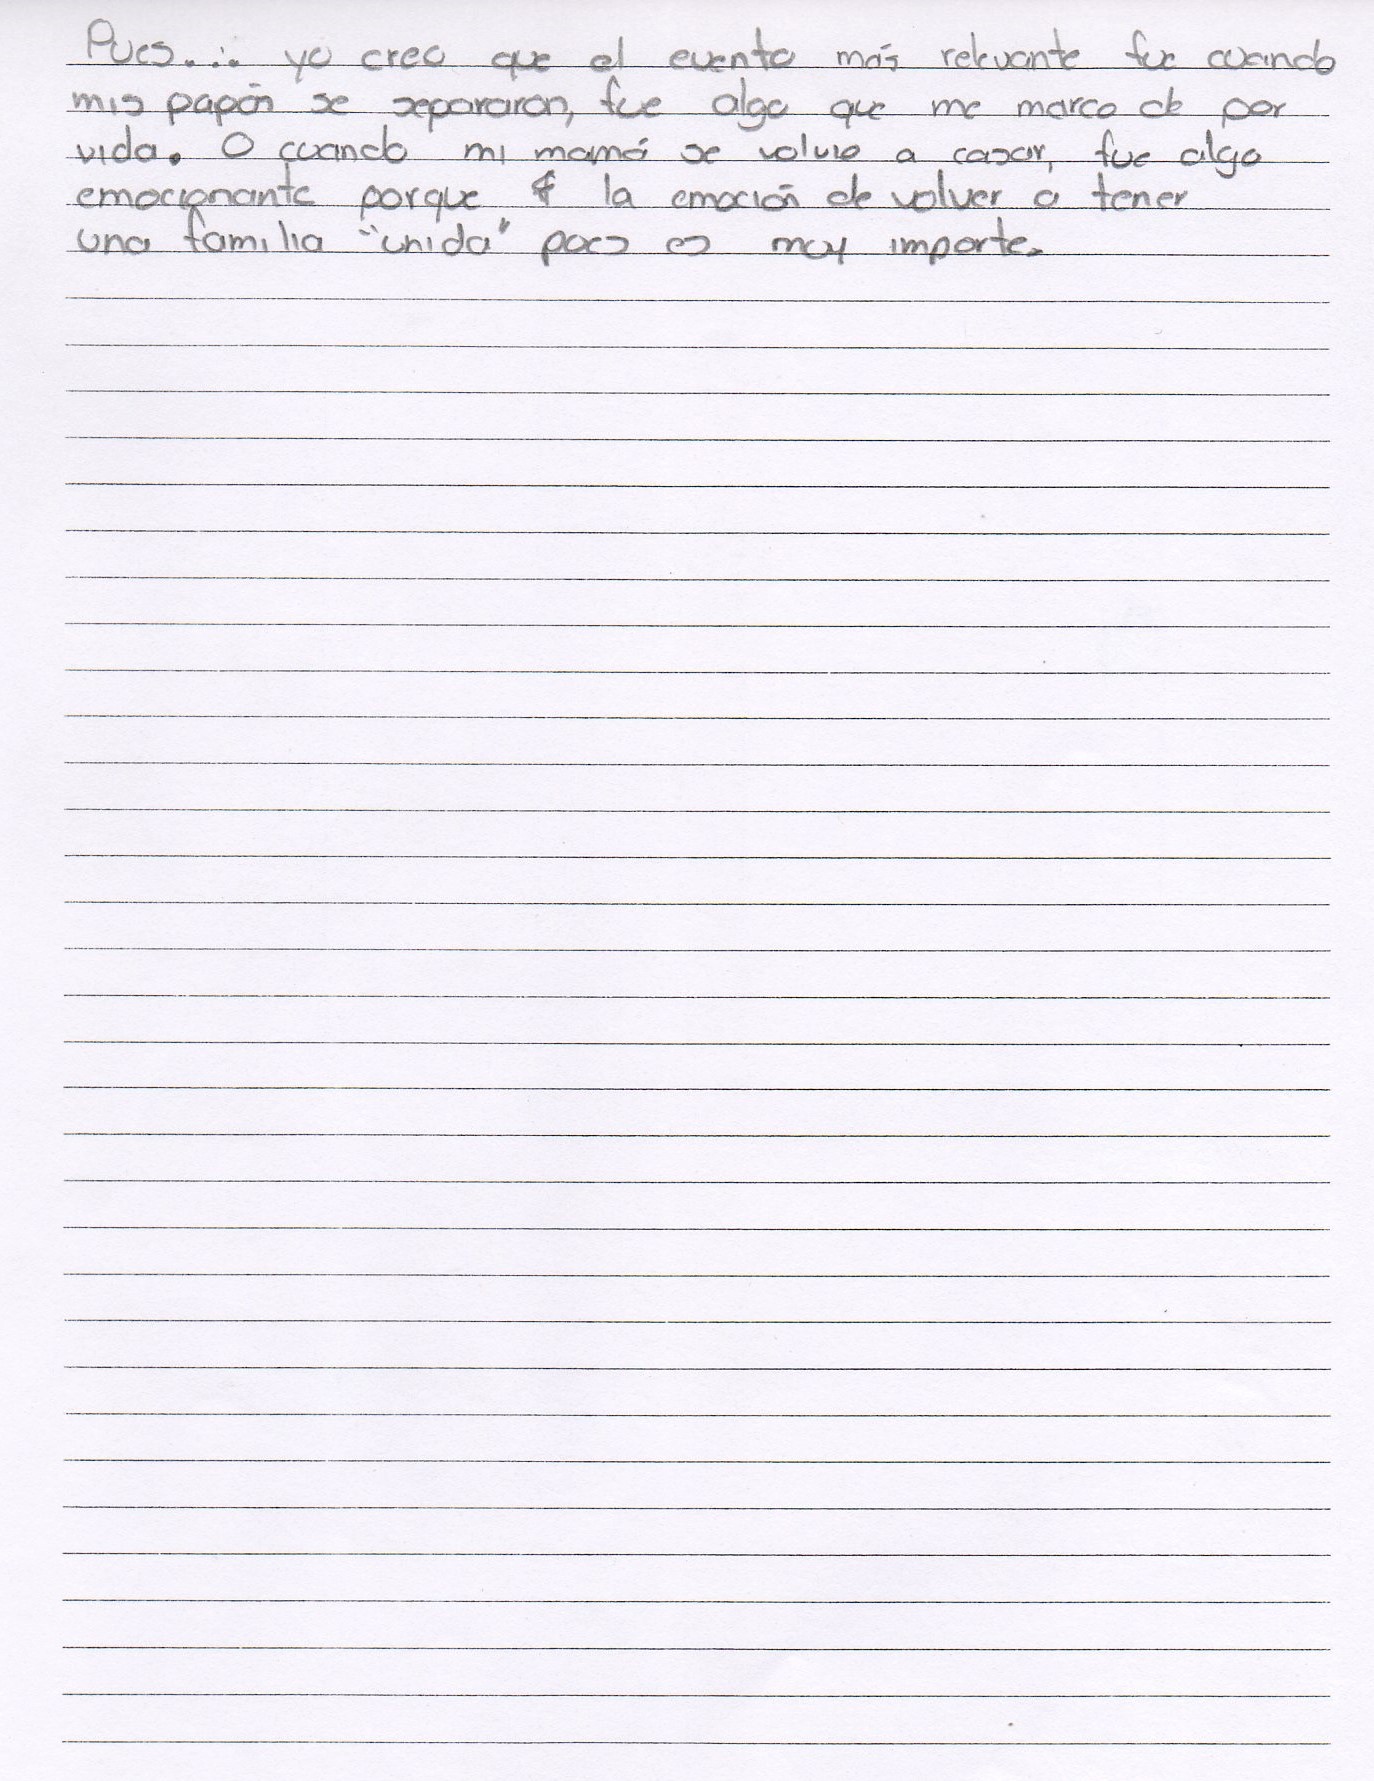 Pues... yo creo que el evento más relevante fue cuando
mis papás se separaron, fue algo que me marco de por
vida. O cuando mi mamá se volvio a casar, fue algo
emocionante porque la emoción de volver a tener
una familia "unida" pues es muy importe.